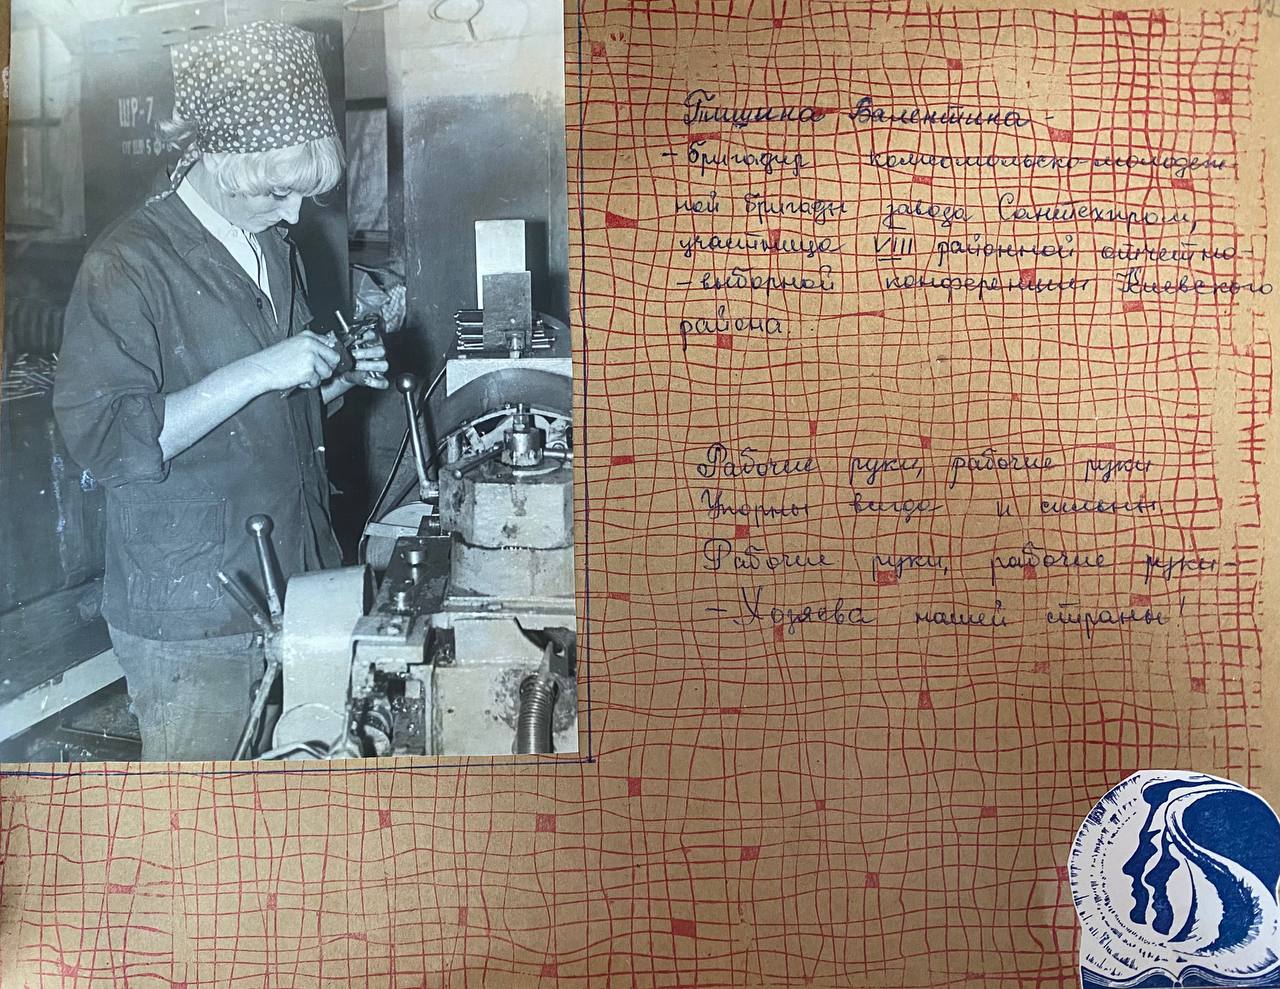 ШР-7
Тишина Валентина -
- бригадир комсомольско-молодеж-
ной бригады завода Сантехпром,
участница VIII районной отчетно-
- выборной конференции Киевского
района.
Рабочие руки, рабочие руки
Упорны всегда и сильны
Рабочие руки, рабочие руки -
- Хозяева нашей страны!